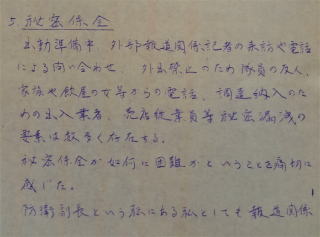 5. 秘密保全
出動準備中、外部報道関係記者の来訪や電話
による問い合わせ、外出禁止のため隊員の友人、
家族や飲屋の女等からの電話、調達納入のた
めの出入業者、売店従業員等秘密漏洩の
要素は数多く存在する。
秘密保全が如何に困難かということを痛切に
感じた。
防衛副長という私にある私としても報道関係